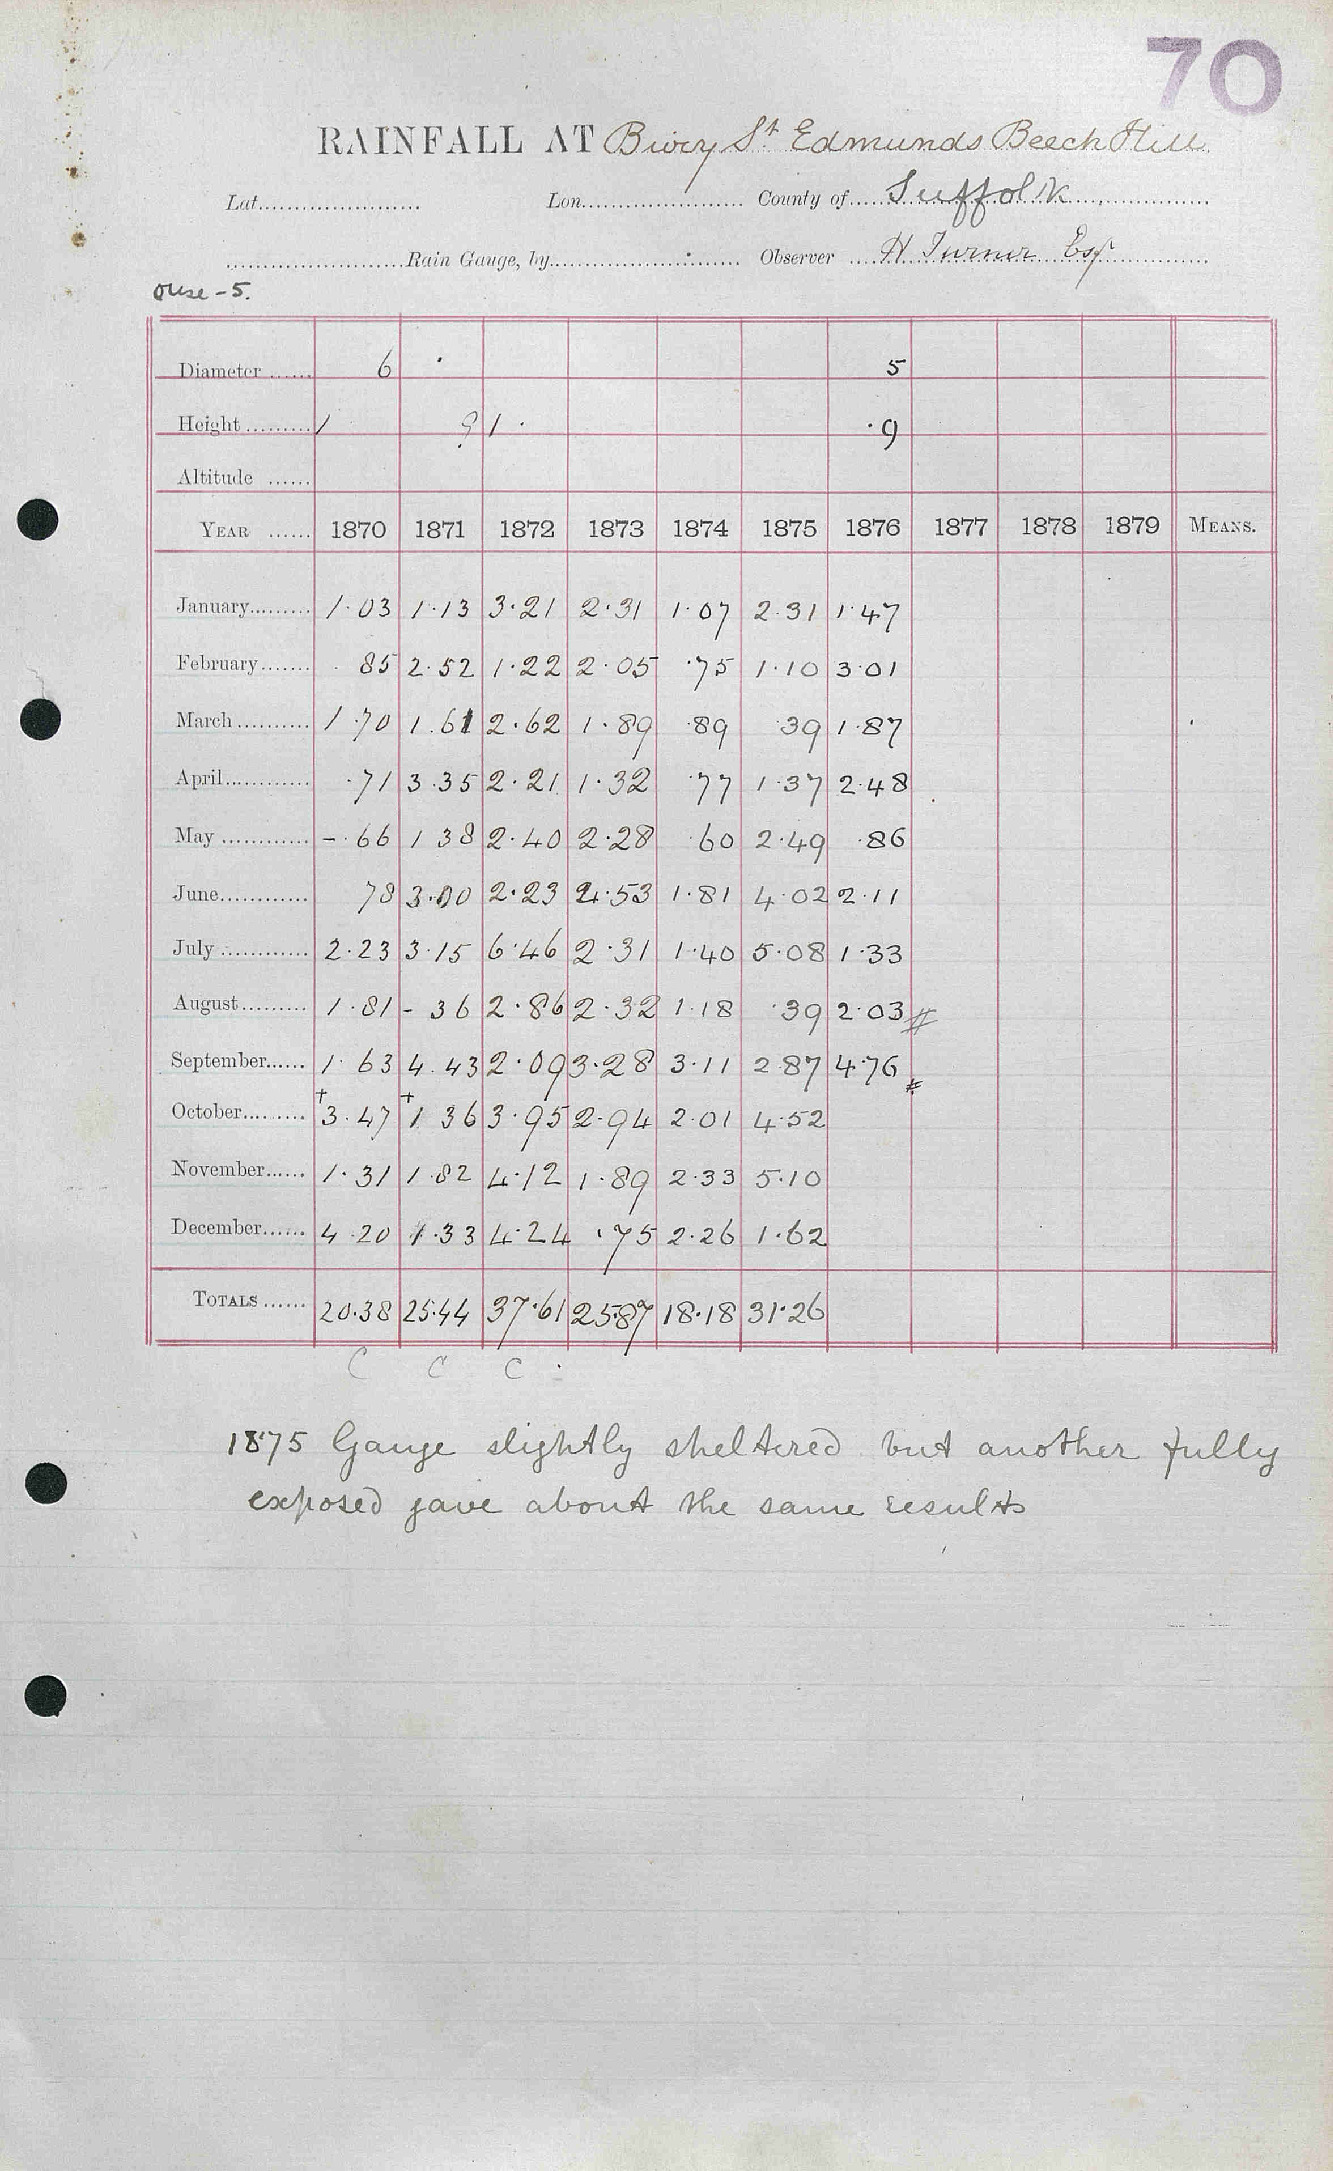 70
RAINFALL AT Bury St Edmunds Beech Hill
Lat. Lon. County of Suffolk
Rain Gauge, by Observer H Turner Esq
Ouse-5.
Diameter 6 5
Height 1 9 1 · ·9
Altitude
YEAR 1870 1871 1872 1873 1874 1875 1876 1877 1878 1879 MEANS.
January 1·03 1·13 3·21 2·31 1·07 2·31 1·47
February ·85 2·52 1·22 2·05 ·75 1·10 3·01
March 1·70 1·61 2·62 1·89 ·89 ·39 1·87
April ·71 3·35 2·21 1·32 ·77 1·37 2·48
May -·66 1 38 2·40 2·28 ·60 2·49 ·86
June 78 3·00 2·23 2·53 1·81 4·02 2·11
July 2·23 3·15 6·46 2·31 1·40 5·08 1·33
August 1·81 - 36 2·86 2·32 1·18 ·39 2·03 #
September 1·63 4·43 2·09 3·28 3·11 2·87 4·76 #
October +3·47 +1 36 3·95 2·94 2·01 4·52
November 1·31 1·82 4·12 1·89 2·33 5·10
December 4·20 1·33 4·24 ·75 2·26 1·62
TOTALS 20·38 25·44 37·61 25·87 18·18 31·26
C C C
1875 Gauge slightly sheltered but another fully
exposed gave about the same results